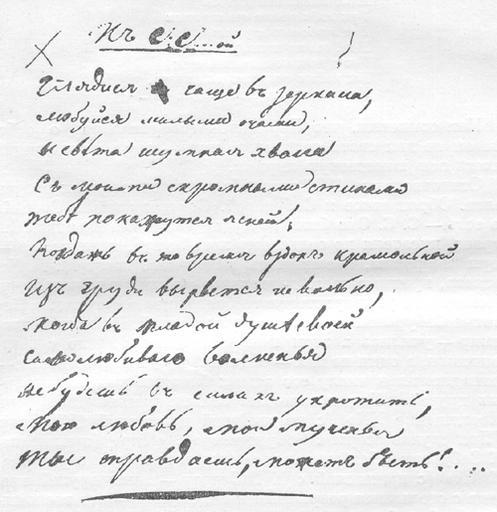 Къ С. С....ой
Глядися чаще въ зеркала,
любуйся милыми очами,
и свѣта шумная хвала
Съ моими скромными стихами
тебѣ покажутся ясней!
Когдажъ въ то время вздохъ крамольной
Изъ груди вырвется невольно,
когда въ младой душѣ своей
самолюбиваго волненья
не будешь въ силахъ укротить,
мою любовь, мои мученья
Ты оправдаешь, можетъ быть!...